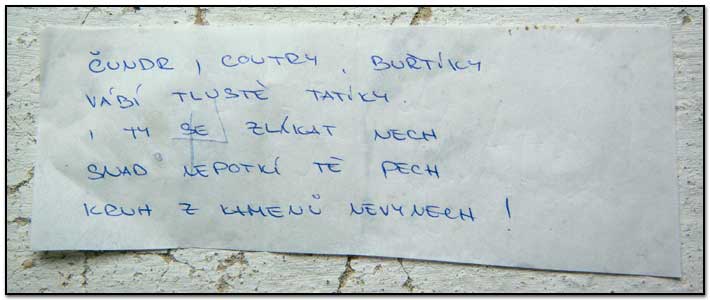 ČUNDR, COUTRY, BUŘTÍKY
VÁBÍ TLUSTÉ TATÍKY.
I TY SE ZLÁKAT NECH
SNAD NEPOTKÁ TĚ PECH
KRUH Z KAMENŮ NEVYNECH!